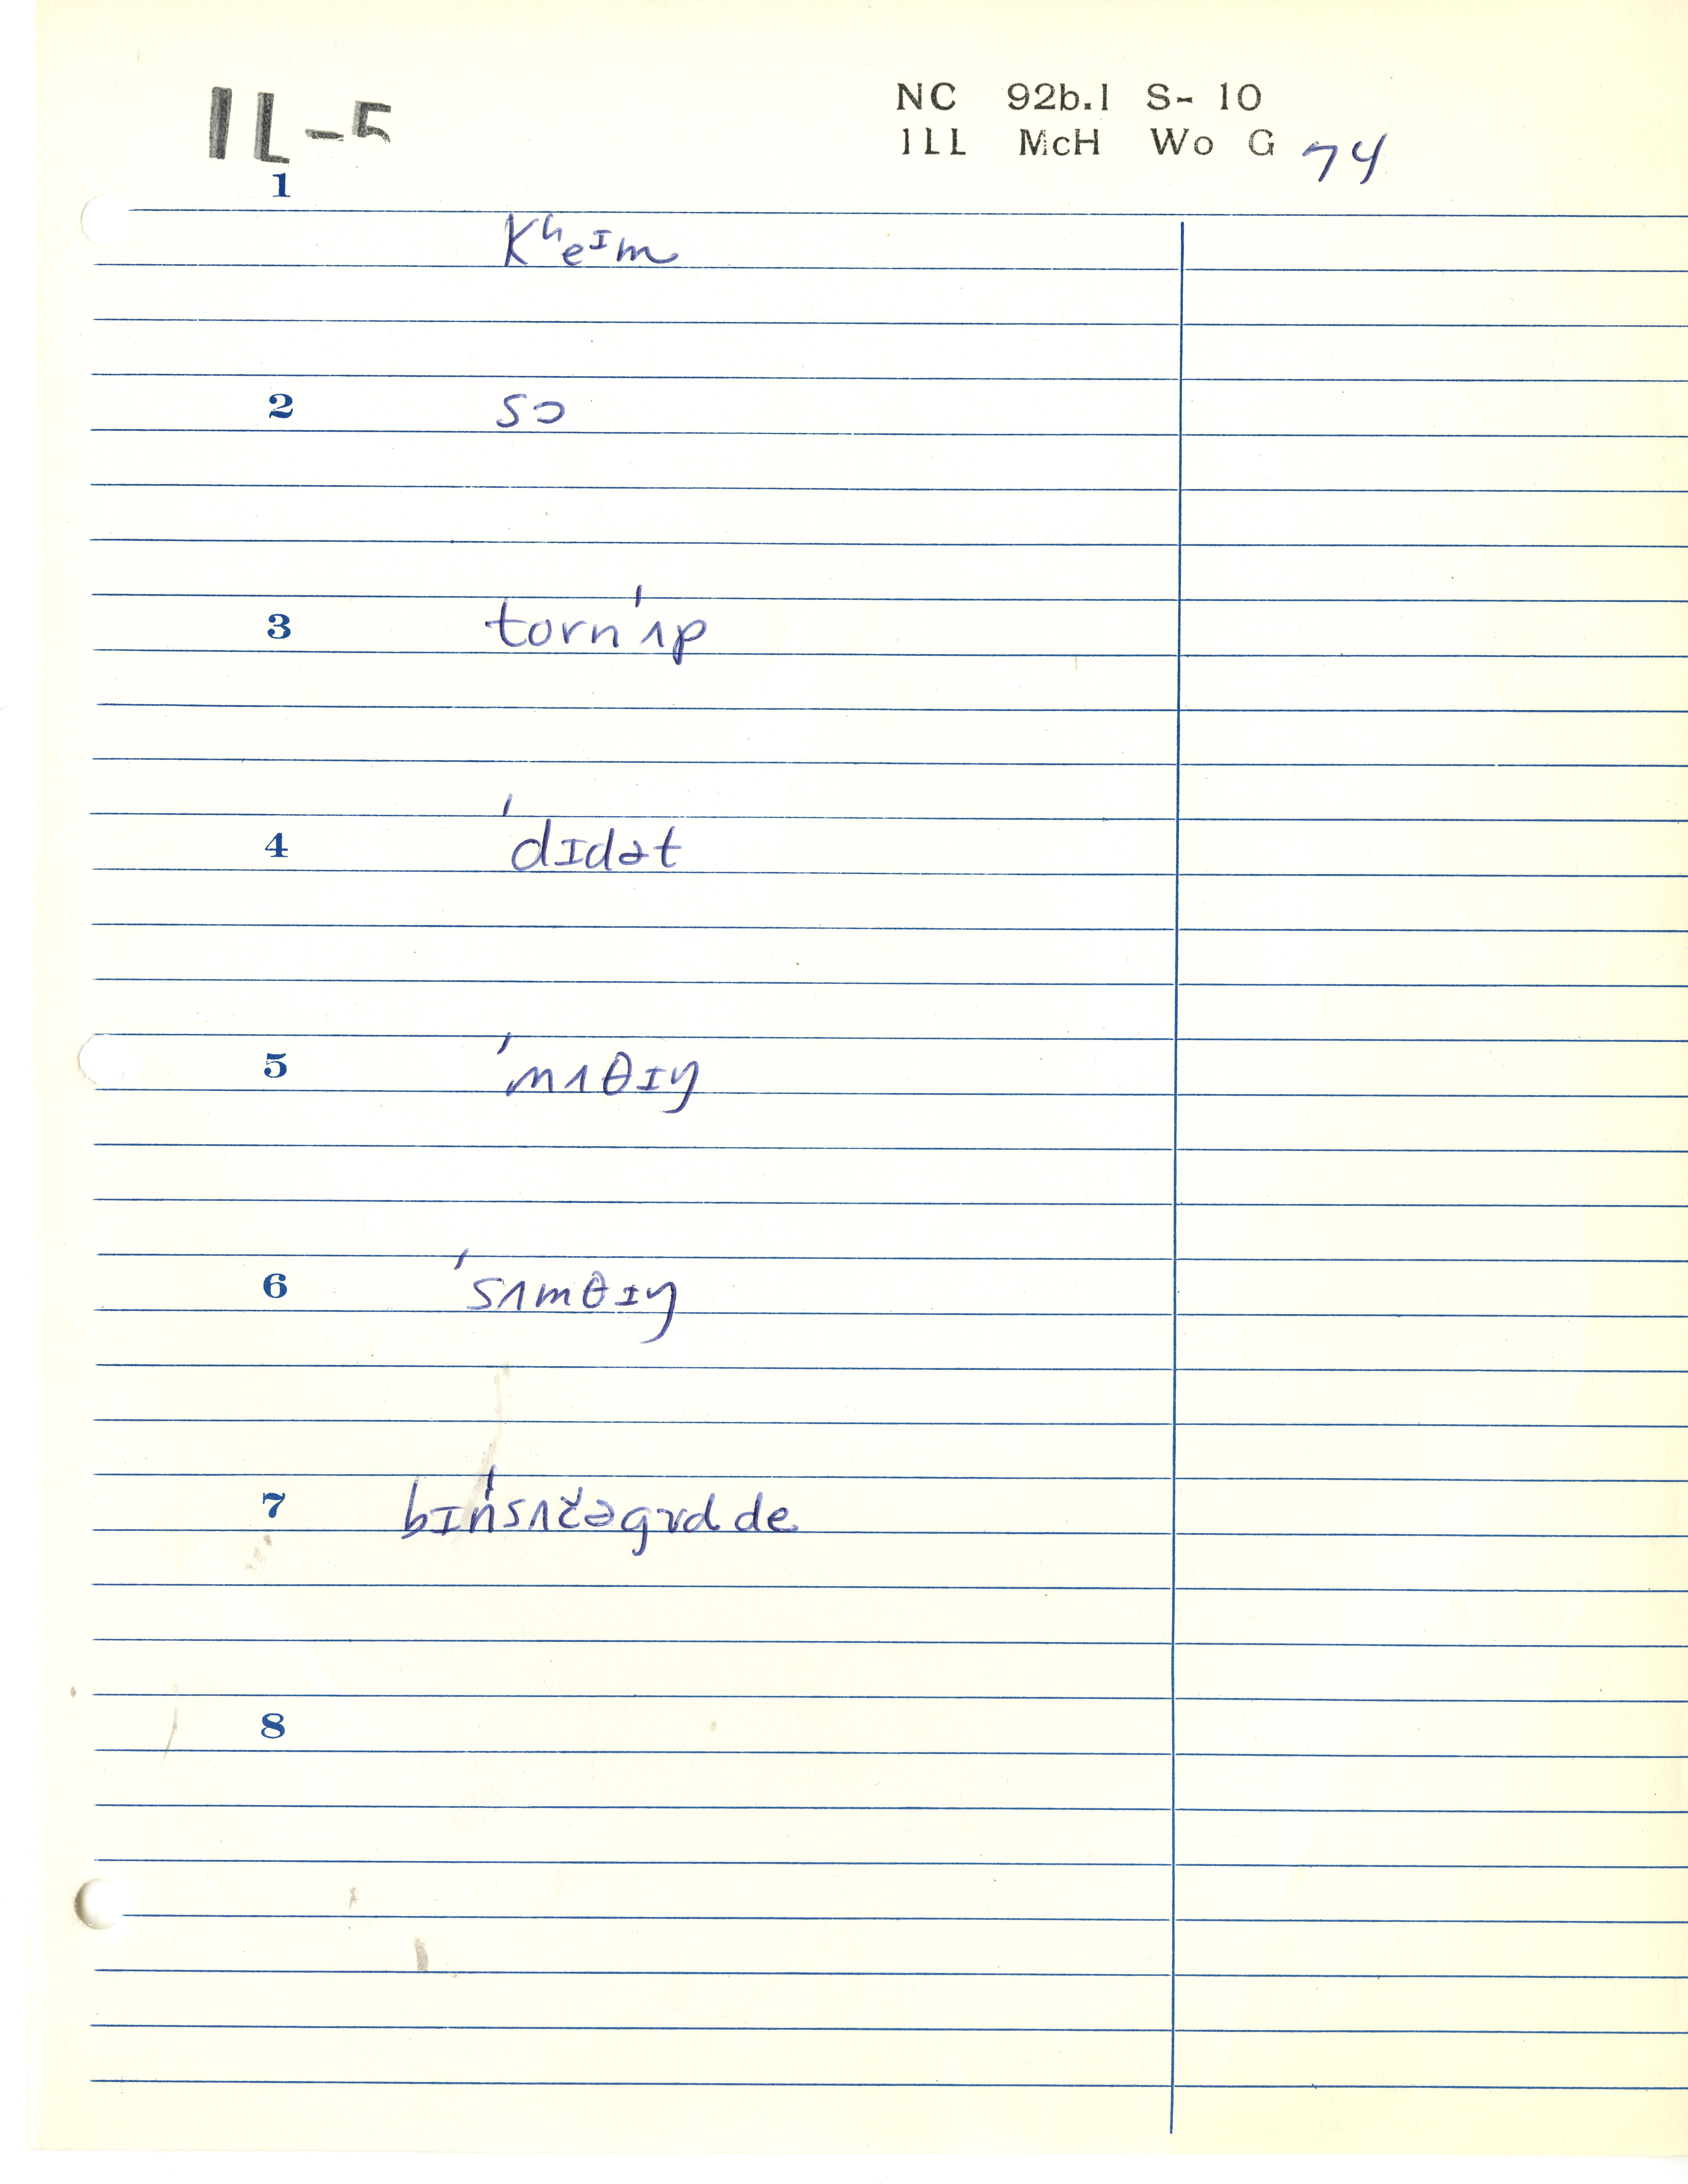 IL-5
NC 92b.1 S- 10
ILL McH Wo G 74
1
Kʰeᴵm
2
sɔ
3
torn'ʌp
4
'dɪdət
5
'nʌθɪŋ
6
'sʌmθɪŋ
7
bɪn'sʌčəgʊd de
8